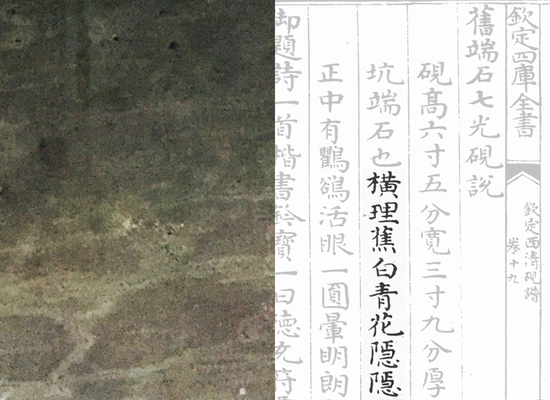 欽定四庫全書
欽定西清硯譜
卷十九
舊端石七光硯說
硯高六寸五分寛三寸九分厚
坑端石也橫理蕉白青花隱隱
正中有鸜鵒活眼一圓暈明朗
御題詩一首楷書鈐寶一曰德充符